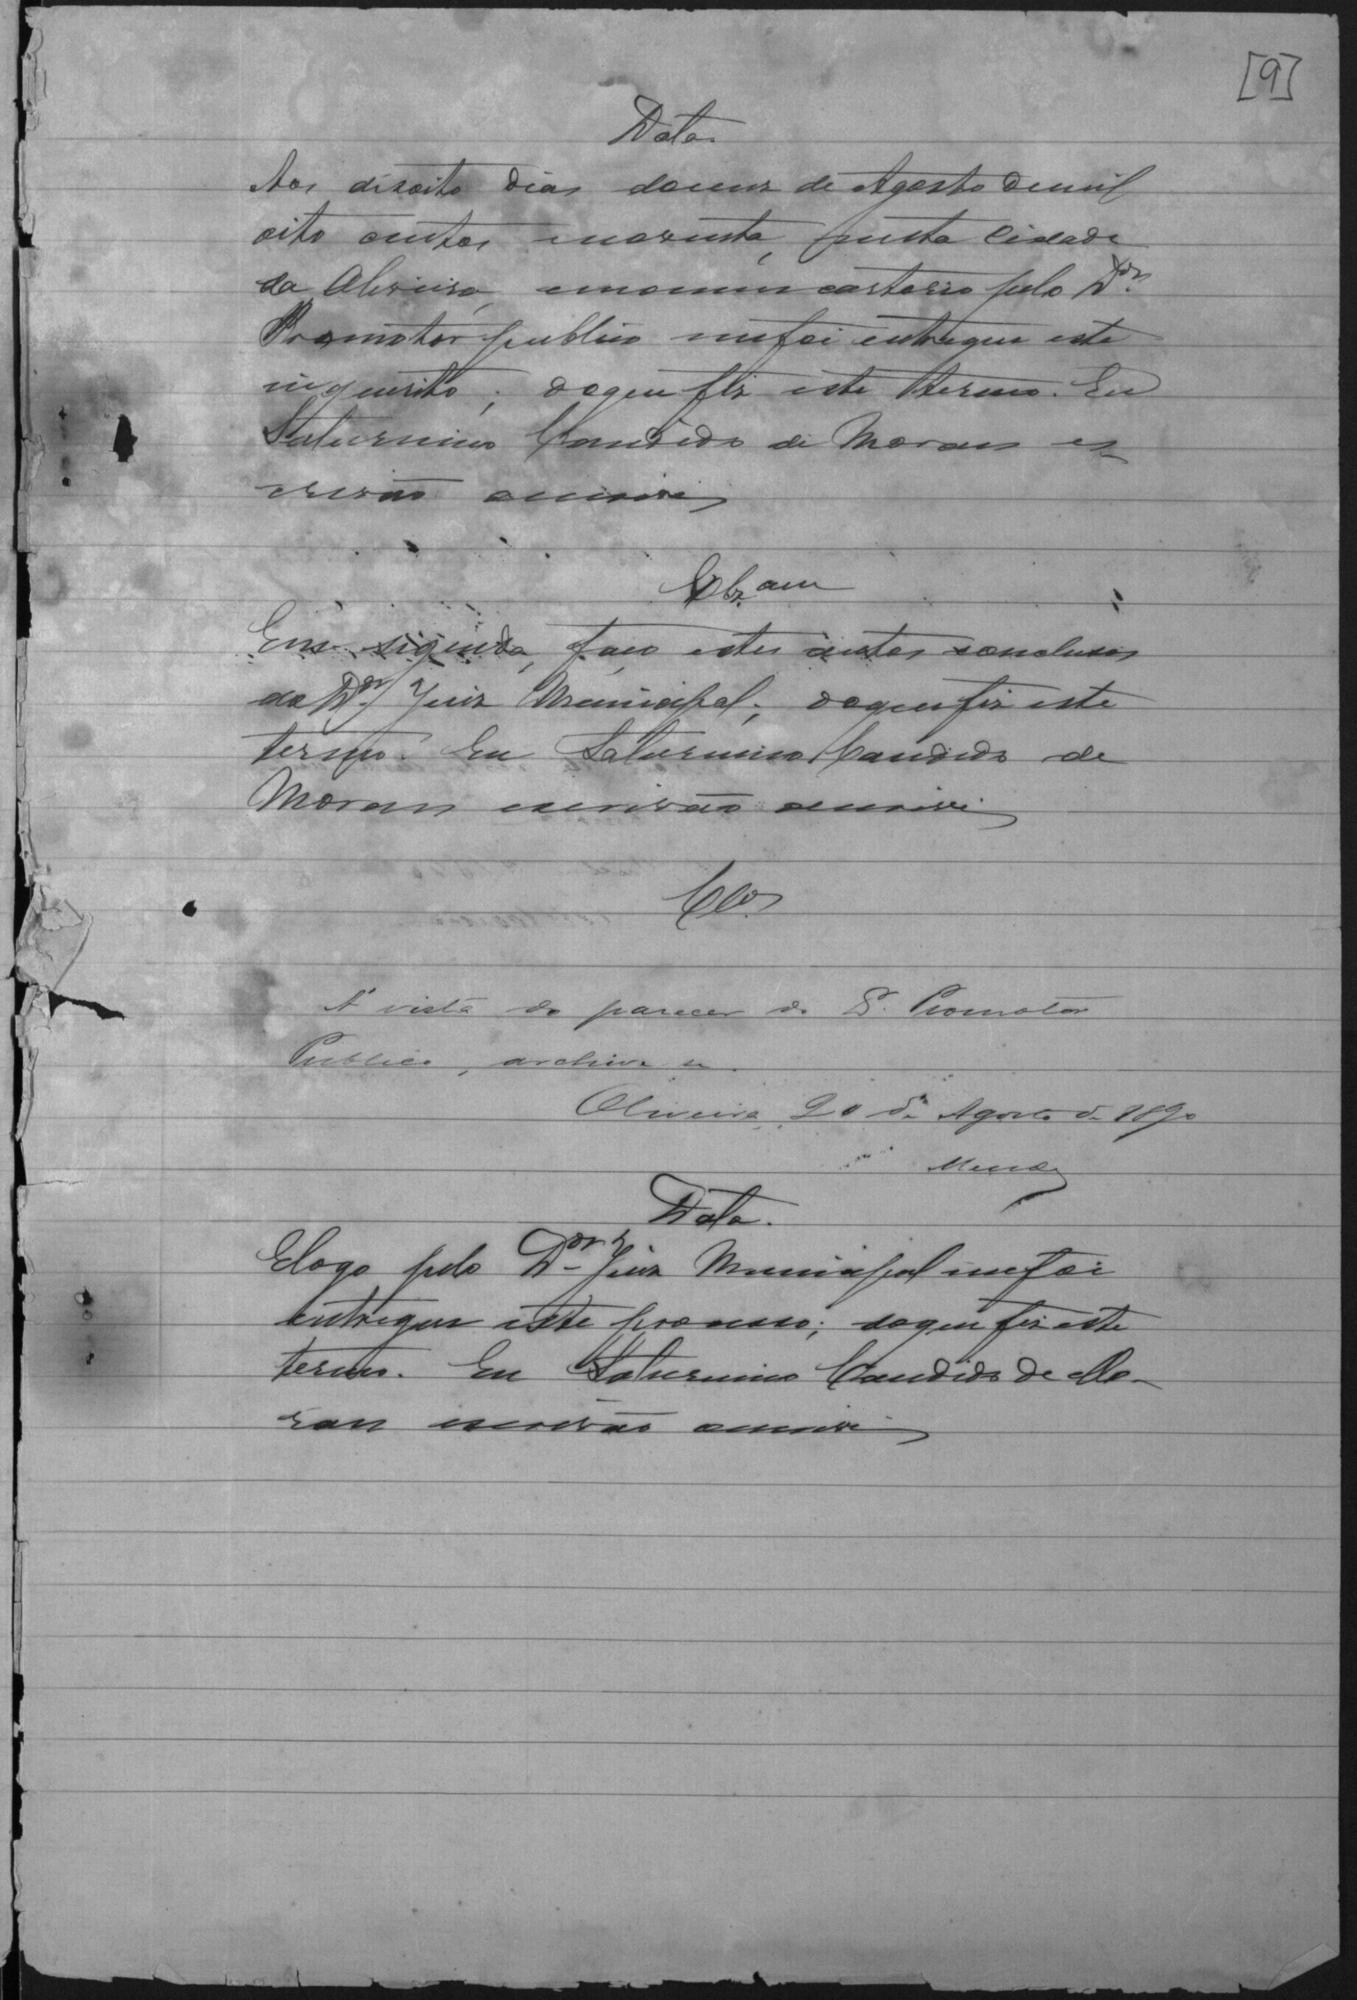 [9]
Data.
Aos dizoito dias domez de Agosto de mil
oito centos enoventa, nesta Cidade
da Oliveira, emomeu cartorio pelo Dor.
Promotor publico mefoi entregue este
inquerito; doque fiz este termo. Eu
Saturnino Candido de Moraes es-
crivão oescrivi
Clzam
Em seguida, faço estes autos conclusos
ao Dor. Juiz Municipal; doque fiz este
termo. Eu Saturnino Candido de
Moraes escrivão oescrivi
Clos.
A' vista do parecer do Dr. Promotor
Publico, archive-se.
Oliveira, 20 de Agosto de 1890
Data.
Elogo pelo Dor. Juiz Municipal mefoi
entregue este processo; doque fiz este
termo. Eu Saturnino Candido de Mo-
raes escrivão oescrivi